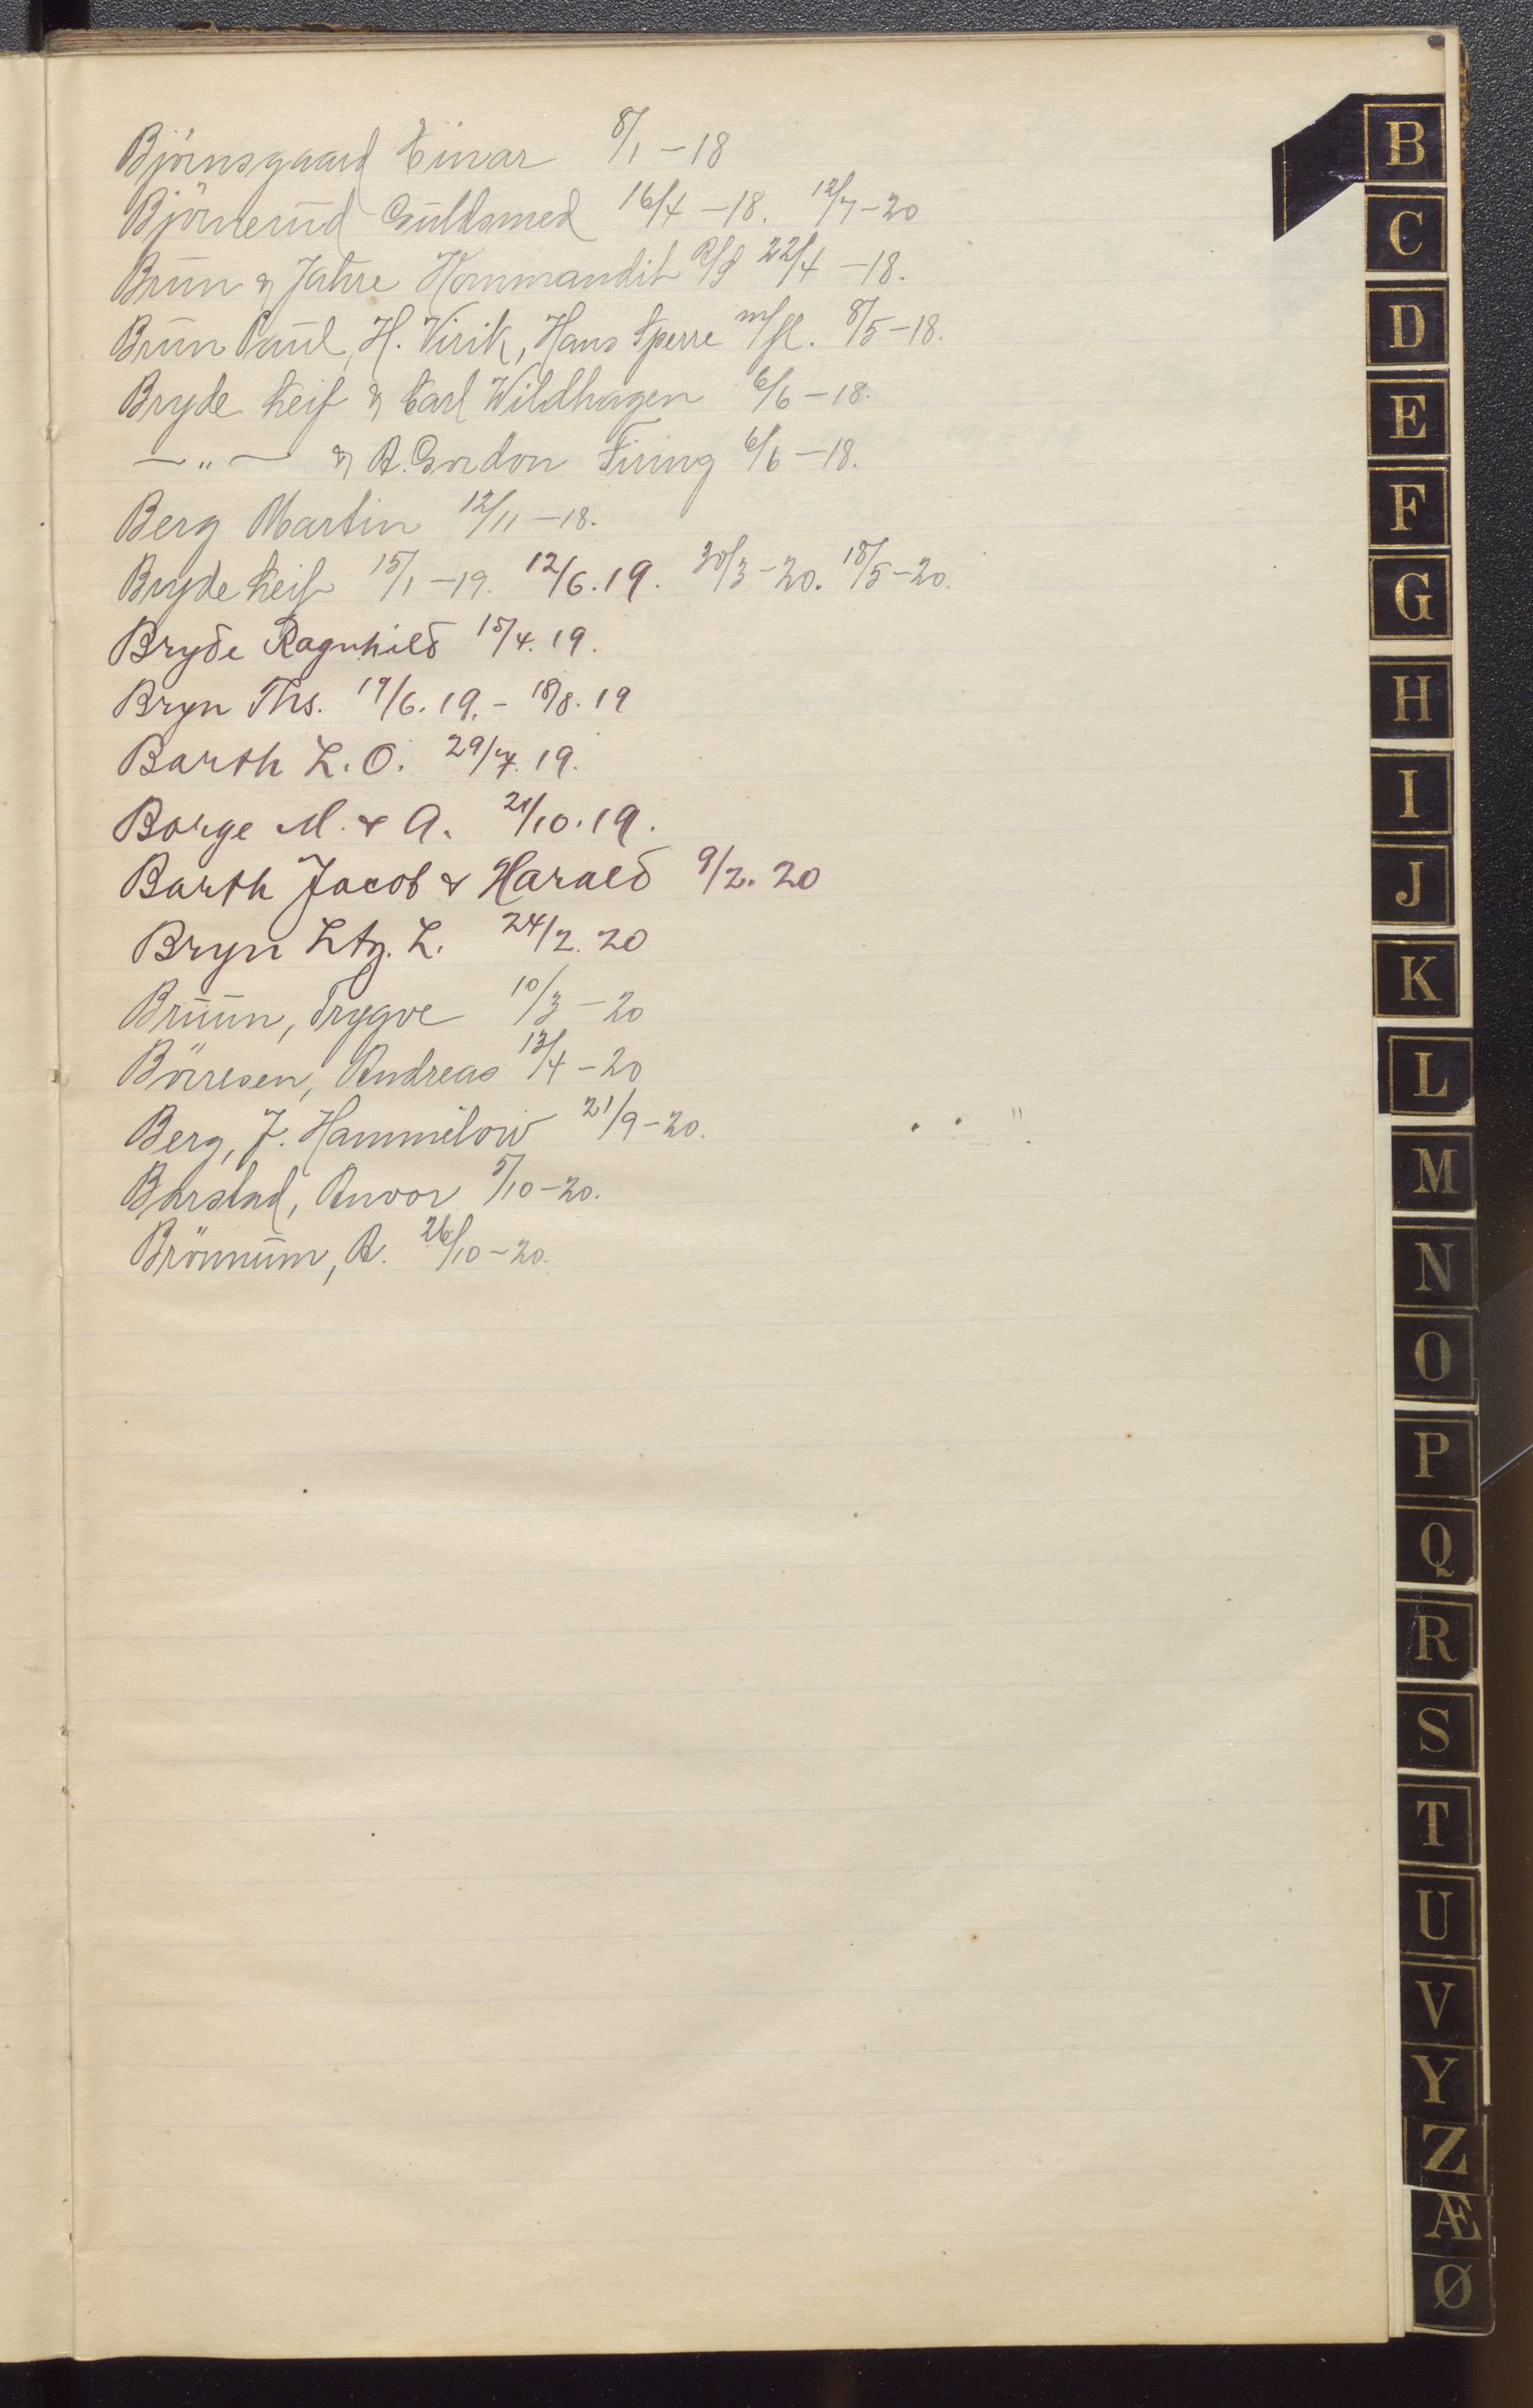 Björnsgaard Einar 8/1 - 18
Björnerud Guldsmed 16/4 - 18. 12/7 - 20
Brun & Jahre Kommandit A/S 22/4 - 18.
Brun Paul, H. Virik, Hans Sperre m/fl. 8/5 - 18.
Bryde Leif & Carl Wildhagen 6/6 - 18.
— " — & A. Gordon Firing 6/6 - 18.
Berg Martin 12/11 - 18.
Bryde Leif 15/1 - 19. 12/6. 19. 30/3 - 20. 18/5 - 20.
Bryde Ragnhild 15/4. 19.
Bryn Ths. 19/6. 19. - 18/8. 19
Barth L. O. 29/7. 19.
Borge M. & A. 21/10. 19.
Barth Jacob & Harald 9/2. 20
Bryn L. 24/2. 20
Bruun, Trygve 10/3 - 20
Börresen, Andreas 13/4 - 20
Berg, J. Hammelow 21/9 - 20.
Barstad, Anvor 5/10 - 20.
Brönnum, A. 26/10 - 20.
B
C
D
E
F
G
H
I
J
K
L
M
N
O
P
Q
R
S
T
U
V
Y
Z
Æ
Ø